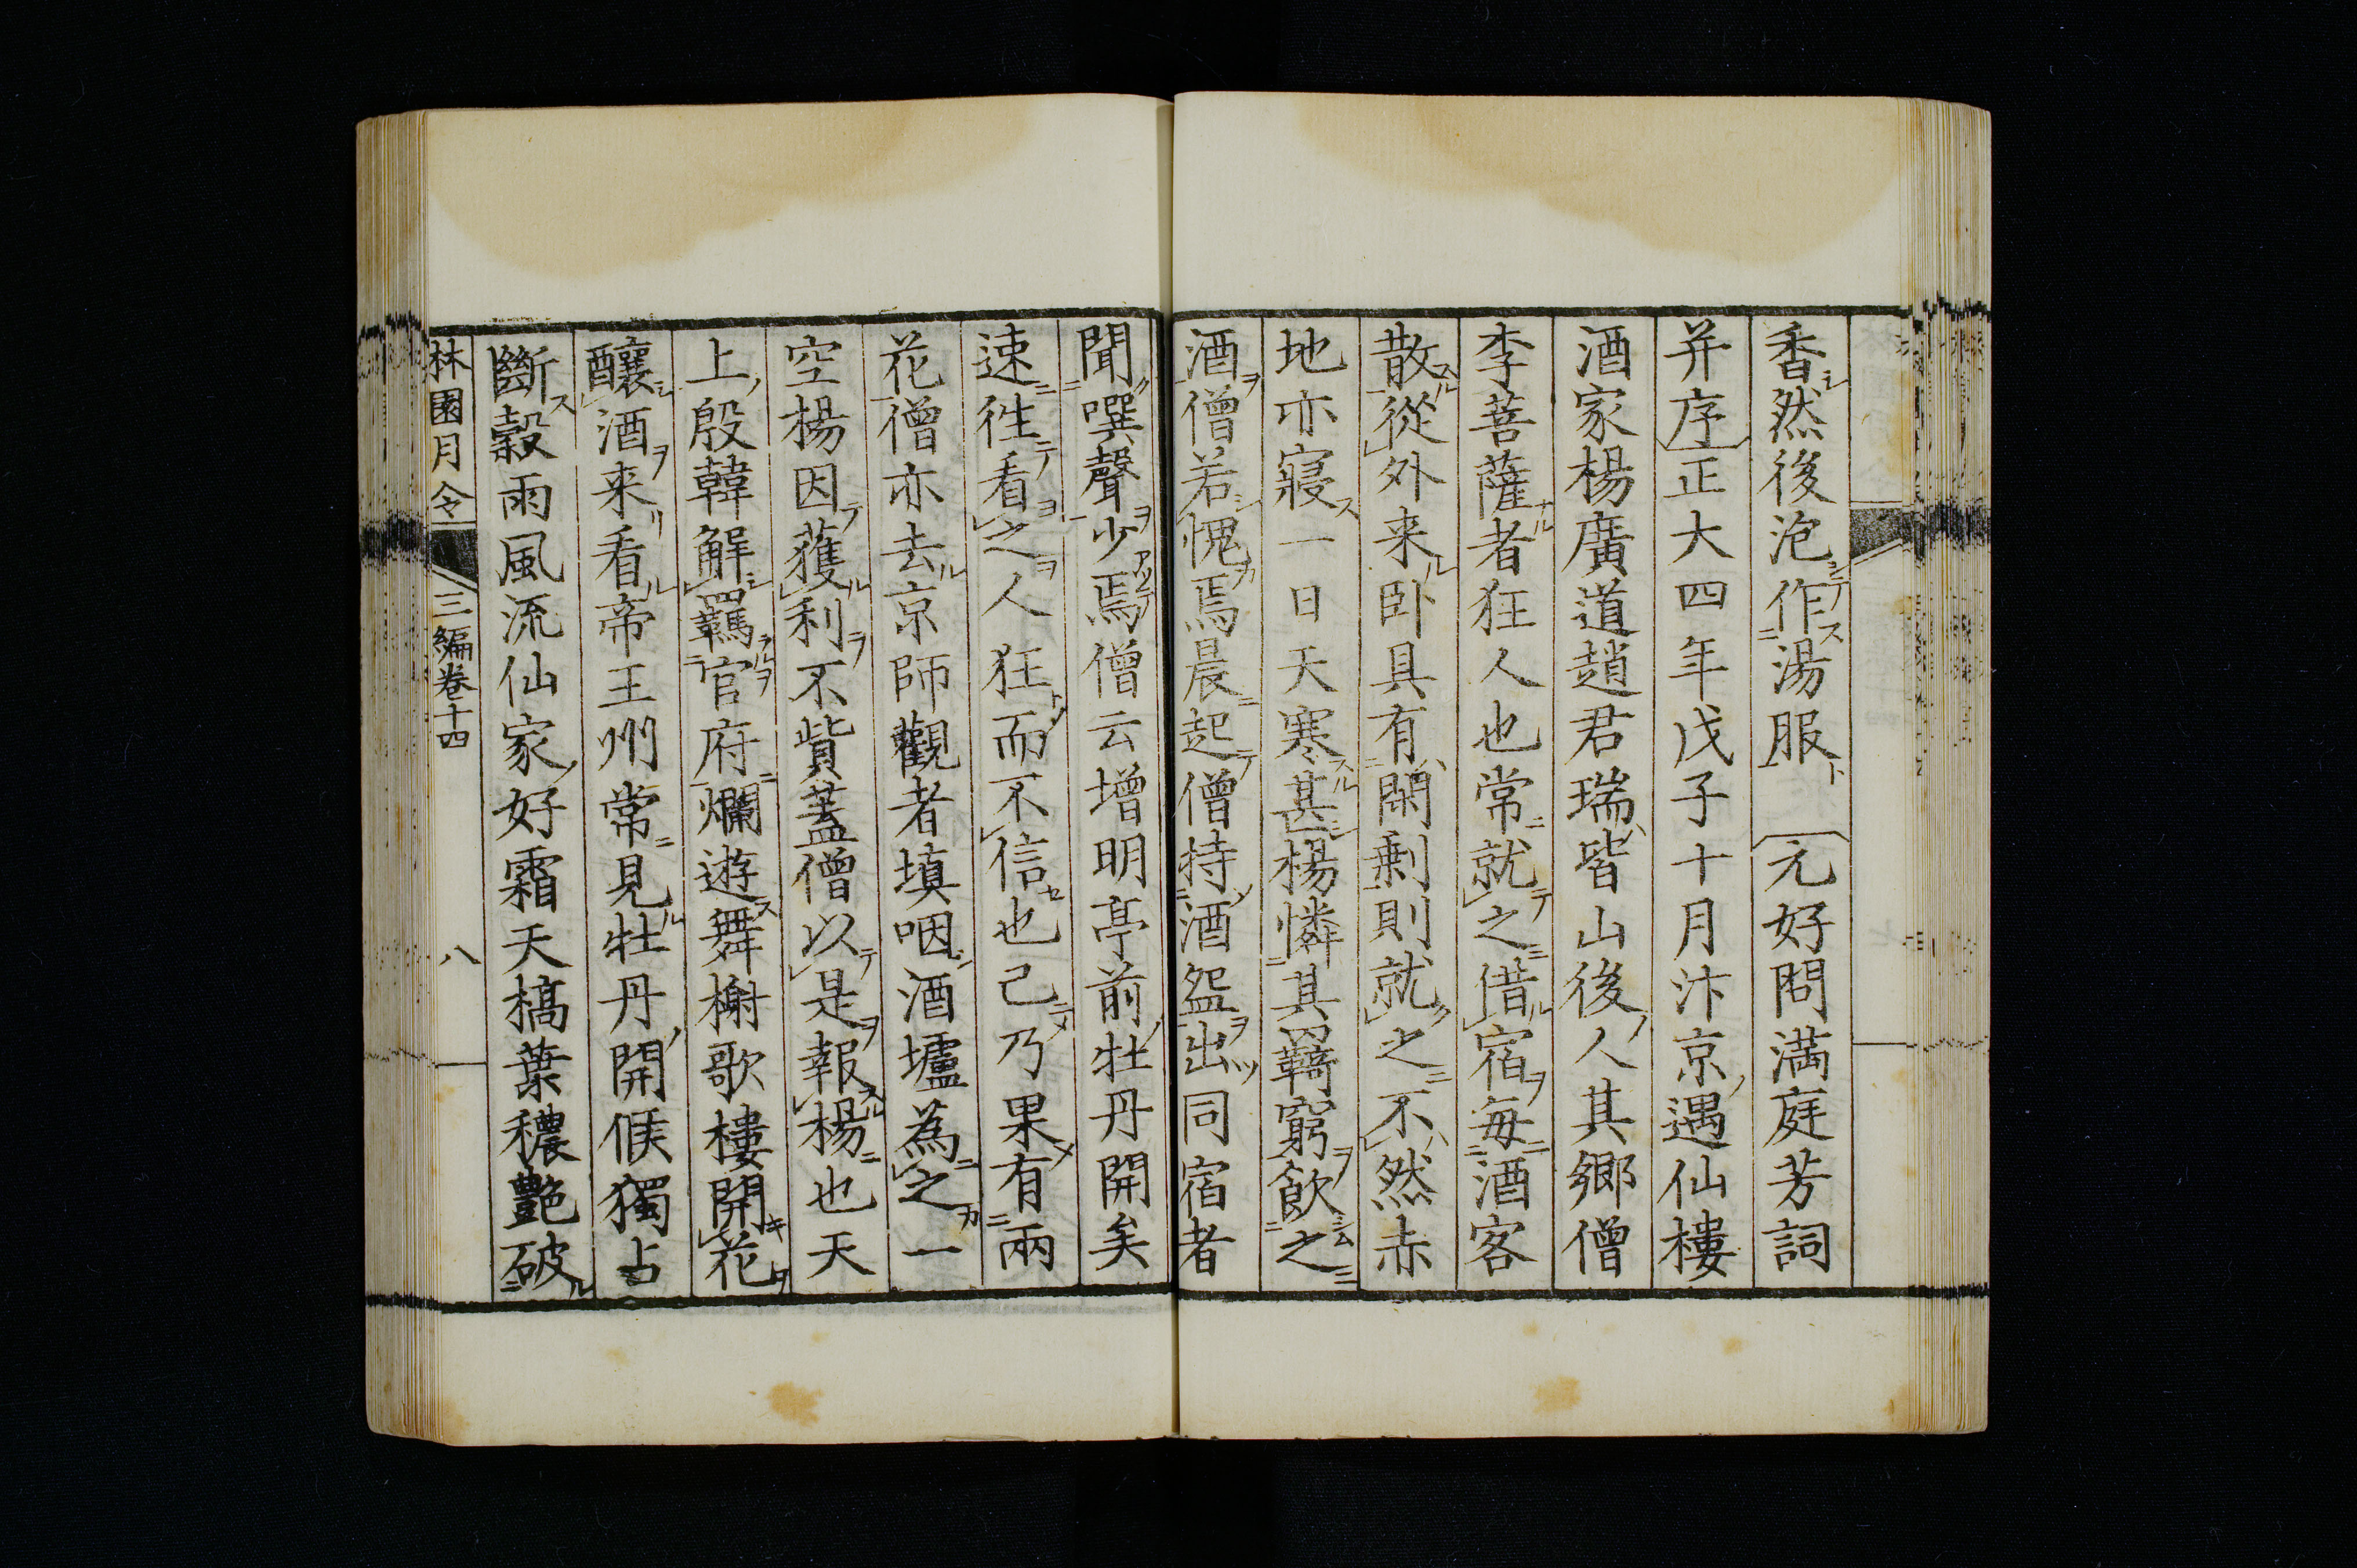 香然後泡作湯服　元好問満庭芳詞
并序正大四年戊子十月汴京遇仙樓
酒家楊廣道趙君瑞皆山後人其郷僧
李菩薩者狂人也常就之借宿毎酒客
散從外来卧具有閑剰則就之不然赤
地亦寢一日天寒甚楊憐其羇窮飲之
酒僧若愧焉晨起僧持酒盌出同宿者
聞噀聲少焉僧云増明亭前牡丹開矣
速徃看之人狂而不信也己乃果有兩
花僧亦去京師觀者填咽酒壚為之一
空楊因獲利不貲蓋僧以是報楊也天
上殷韓解羈官府爛遊舞榭歌樓開花
釀酒来看帝王州常見牡丹開候獨占
斷穀雨風流仙家好霜天槁葉穠艷破
林園月令　三編卷十四　八